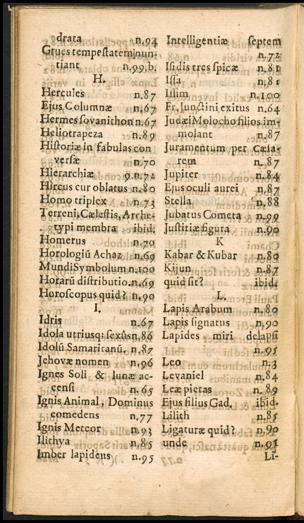 drata n.94
Grues tempestatem nun-
tiant n.99,b.
H.
Hercules n.87
Ejus Columnæ n.67
Hermes sovanithon n.67
Heliotrapeza n.89
Historiæ in fabulas con
versæ n.70
Hierarchiæ 9.n.72
Hircus cur oblatus n.80
Homo triplex n.73
Terreni, Cælestis, Arche-
typi membra ibid.
Homerus n.70
Horologiũ Achaz n.69
Mundi Symbolum n.100
Horarũ distributio.n.69
Horoscopus quid? n.90
I.
Idris n.67
Idola utriusq; sexûs n.86
Idolũ Samaritanũ. n.87
Jehovæ nomen n.96
Ignes Soli & lunæ ac-
censi n.65
Ignis Animal, Dominus
comedens n.77
Ignis Meteor n.93
Ilithya n.85
Imber lapideus n.95
Intelligentiæ septem
n.72
Isidis tres spicæ n.81
Issa n.81
Iulium n.100
Fr. Junctini exitus n.64
Judæi Molocho filios im-
molant n.87
Juramentum per Cæsa-
rem n.87
Jupiter n.84
Ejus oculi aurei n.87
Stella n.88
Jubatus Cometa n.99
Justitiæ figura n.90
K
Kabar & Kubar n.80
Kijun n.87
quid sit? ibid.
L.
Lapis Arabum n.80
Lapis signatus n.90
Lapides miri delapsi
n.95
Leo n.3
Levaniel n.84
Leæ pietas n.89
Ejus filius Gad, ibid.
Lilith n.85
Ligaturæ quid? n.90
unde n.91
Li-